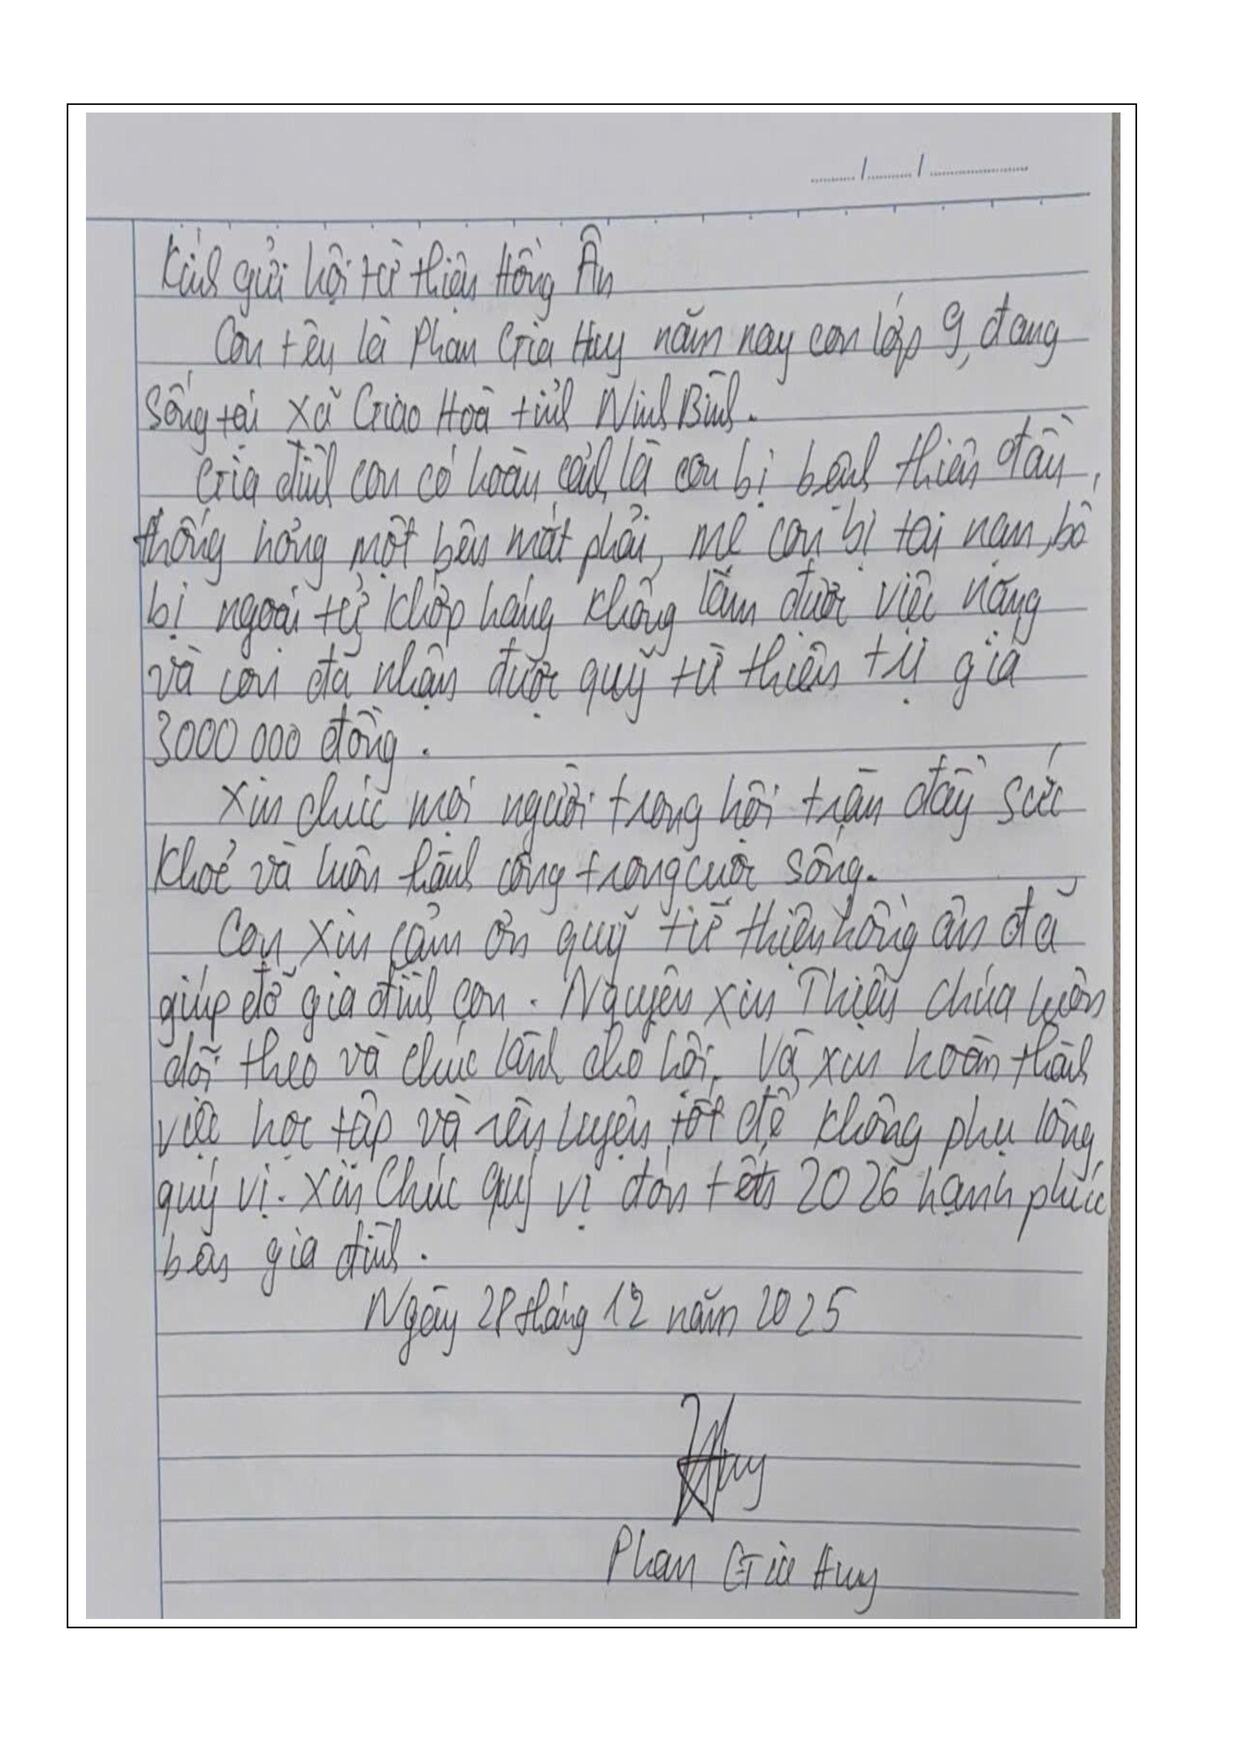 Kính gửi hội từ thiện Hồng Ân
Con tên là Phan Gia Huy năm nay con lớp 9, đang
sống tại xã Giao Hoà tỉnh Ninh Bình.
Gia đình con có hoàn cảnh là con bị bệnh thiên đầu
thống hỏng một bên mắt phải, mẹ con bị tai nạn, bố
bị ngoại tử khớp háng không làm được việc nặng
và con đã nhận được quỹ từ thiện trị giá
3000 000 đồng.
Xin chúc mọi người trong hội tràn đầy sức
khoẻ và luôn thành công trong cuộc sống.
Con xin cảm ơn quỹ từ thiện hồng ân đã
giúp đỡ gia đình con. Nguyện xin Thiên chúa luôn
dõi theo và chúc lành cho hội. Và xin hoàn thành
việc học tập và rèn luyện tốt để không phụ lòng
quý vị. Xin Chúc quý vị đón tết 2026 hạnh phúc
bên gia đình.
Ngày 28 tháng 12 năm 2025
Huy
Phan Gia Huy